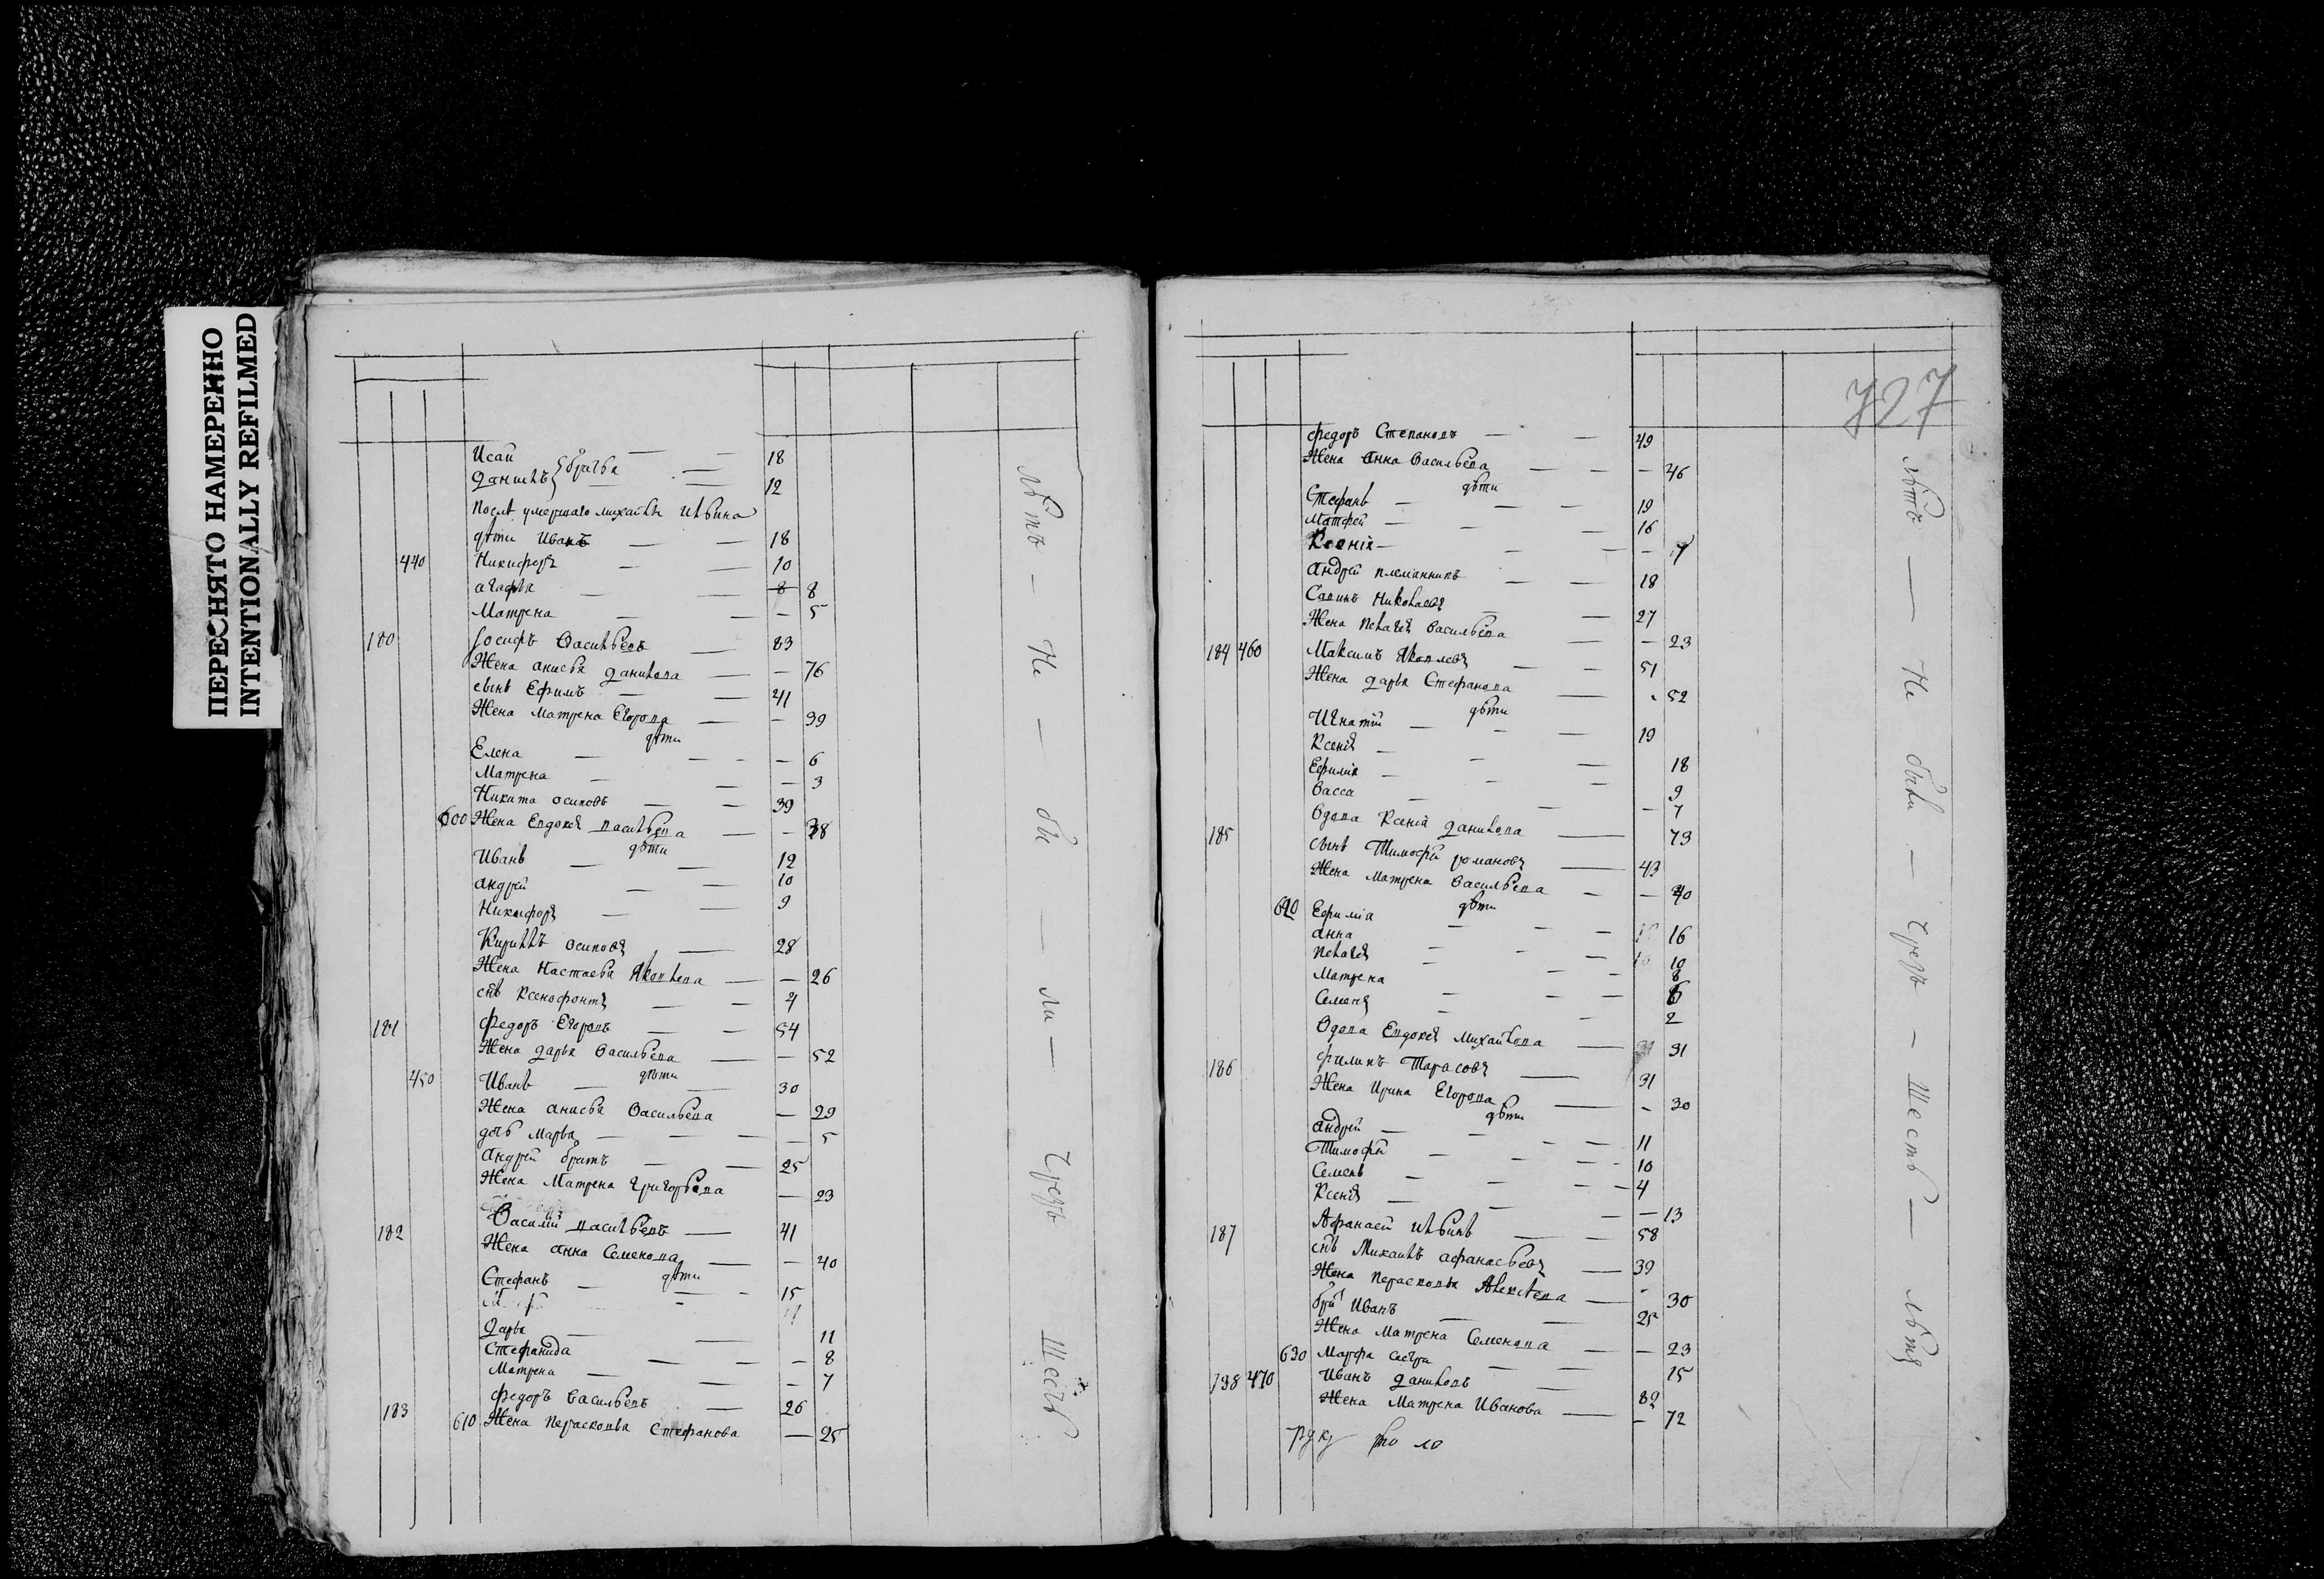 ПЕРЕСНЯТО НАМЕРЕННО
INTENTIONALLY REFILMED
Исаи 18
Данилъ } братья 12
После умершаго михайлы Ильина
дѣти Иванъ 18
440 Никифоръ 10
агафья 8 8
Матрена — 5
180 Iосифъ Васильевъ 83
Жена анисья данилова — 76
сынъ Ефимъ 41
Жена матрена Егорова — 39
дѣти
Елена — 6
Матрена — 3
Никита осиповъ 39
600 Жена Евдокея васильева — 38
дѣти
Иванъ 12
андрей 10
Никифоръ 9
Кирилъ осиповъ 28
Жена Настасья Яковлева — 26
снъ Ксенофонтъ 4
181 Федоръ Егоровъ 54
Жена дарья Васильева — 52
дѣти
450 Иванъ 30
Жена анисья Васильева — 29
дочь марья — 5
андрей братъ 25
Жена Матрена григорьева — 23
182 Василий васильевъ 41
Жена анна Семенова — 40
дѣти
Стефанъ 15
дарья 11
Стефанида — 8
Матрена — 7
183 федоръ васильевъ 26
610 Жена Перасковья Стефанова — 25
лѣтъ — Не — бы — ли — Чрезъ Шесть
727
федоръ Степановъ 49
Жена анна Васильева — 46
дѣти
Стефанъ 19
Матфей 16
Ксенія — 7
андрей племянникъ 18
Савинъ Николаевъ 27
Жена Пелагея васильева — 23
184 460 Максимъ Яковлевъ 51
Жена дарья Стефанова 52
дѣти
Игнатій 19
Ксенія 18
Ефимія 9
Васса — 7
185 Вдова Ксенія данилова 73
сынъ Тимофей романовъ 43
Жена матрена Васильева — 40
дѣти
620 Ефимія 16
анна 10
Пелагея 8
Матрена 6
Семенъ 2
Вдова Евдокея Михайлова 31
186 филипъ Тарасовъ 31
Жена Ирина Егорова — 30
дѣти
андрей 11
Тимофей 10
Семенъ 4
Ксенія — 13
187 Афанасей Ильинъ 58
снъ Михаилъ афанасьевъ 39
Жена Перасковья Алексѣева — 30
братъ Иванъ 25
Жена Матрена Семенова — 23
630 Марфа сестра 15
798 470 Иванъ Даниловъ 82
Жена Матрена Иванова — 72
лѣтъ — Не были — Чрезъ — Шесть — лѣтъ